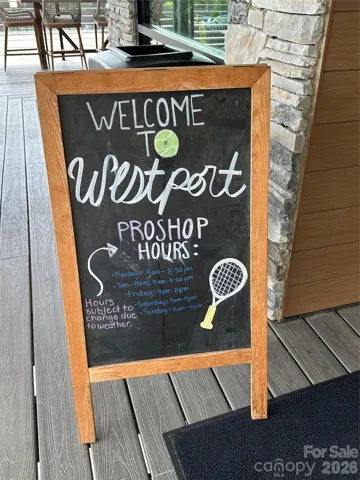 WELCOME
TO
Westport
PROSHOP
HOURS:
• Monday: 9am - 8:30pm
• Friday: 9am - 8pm
• Saturday: 9am - 9pm
• Sunday: 11am - 9pm
Hours
subject to
change due
to weather.
For Sale
canopy
MLS
2026